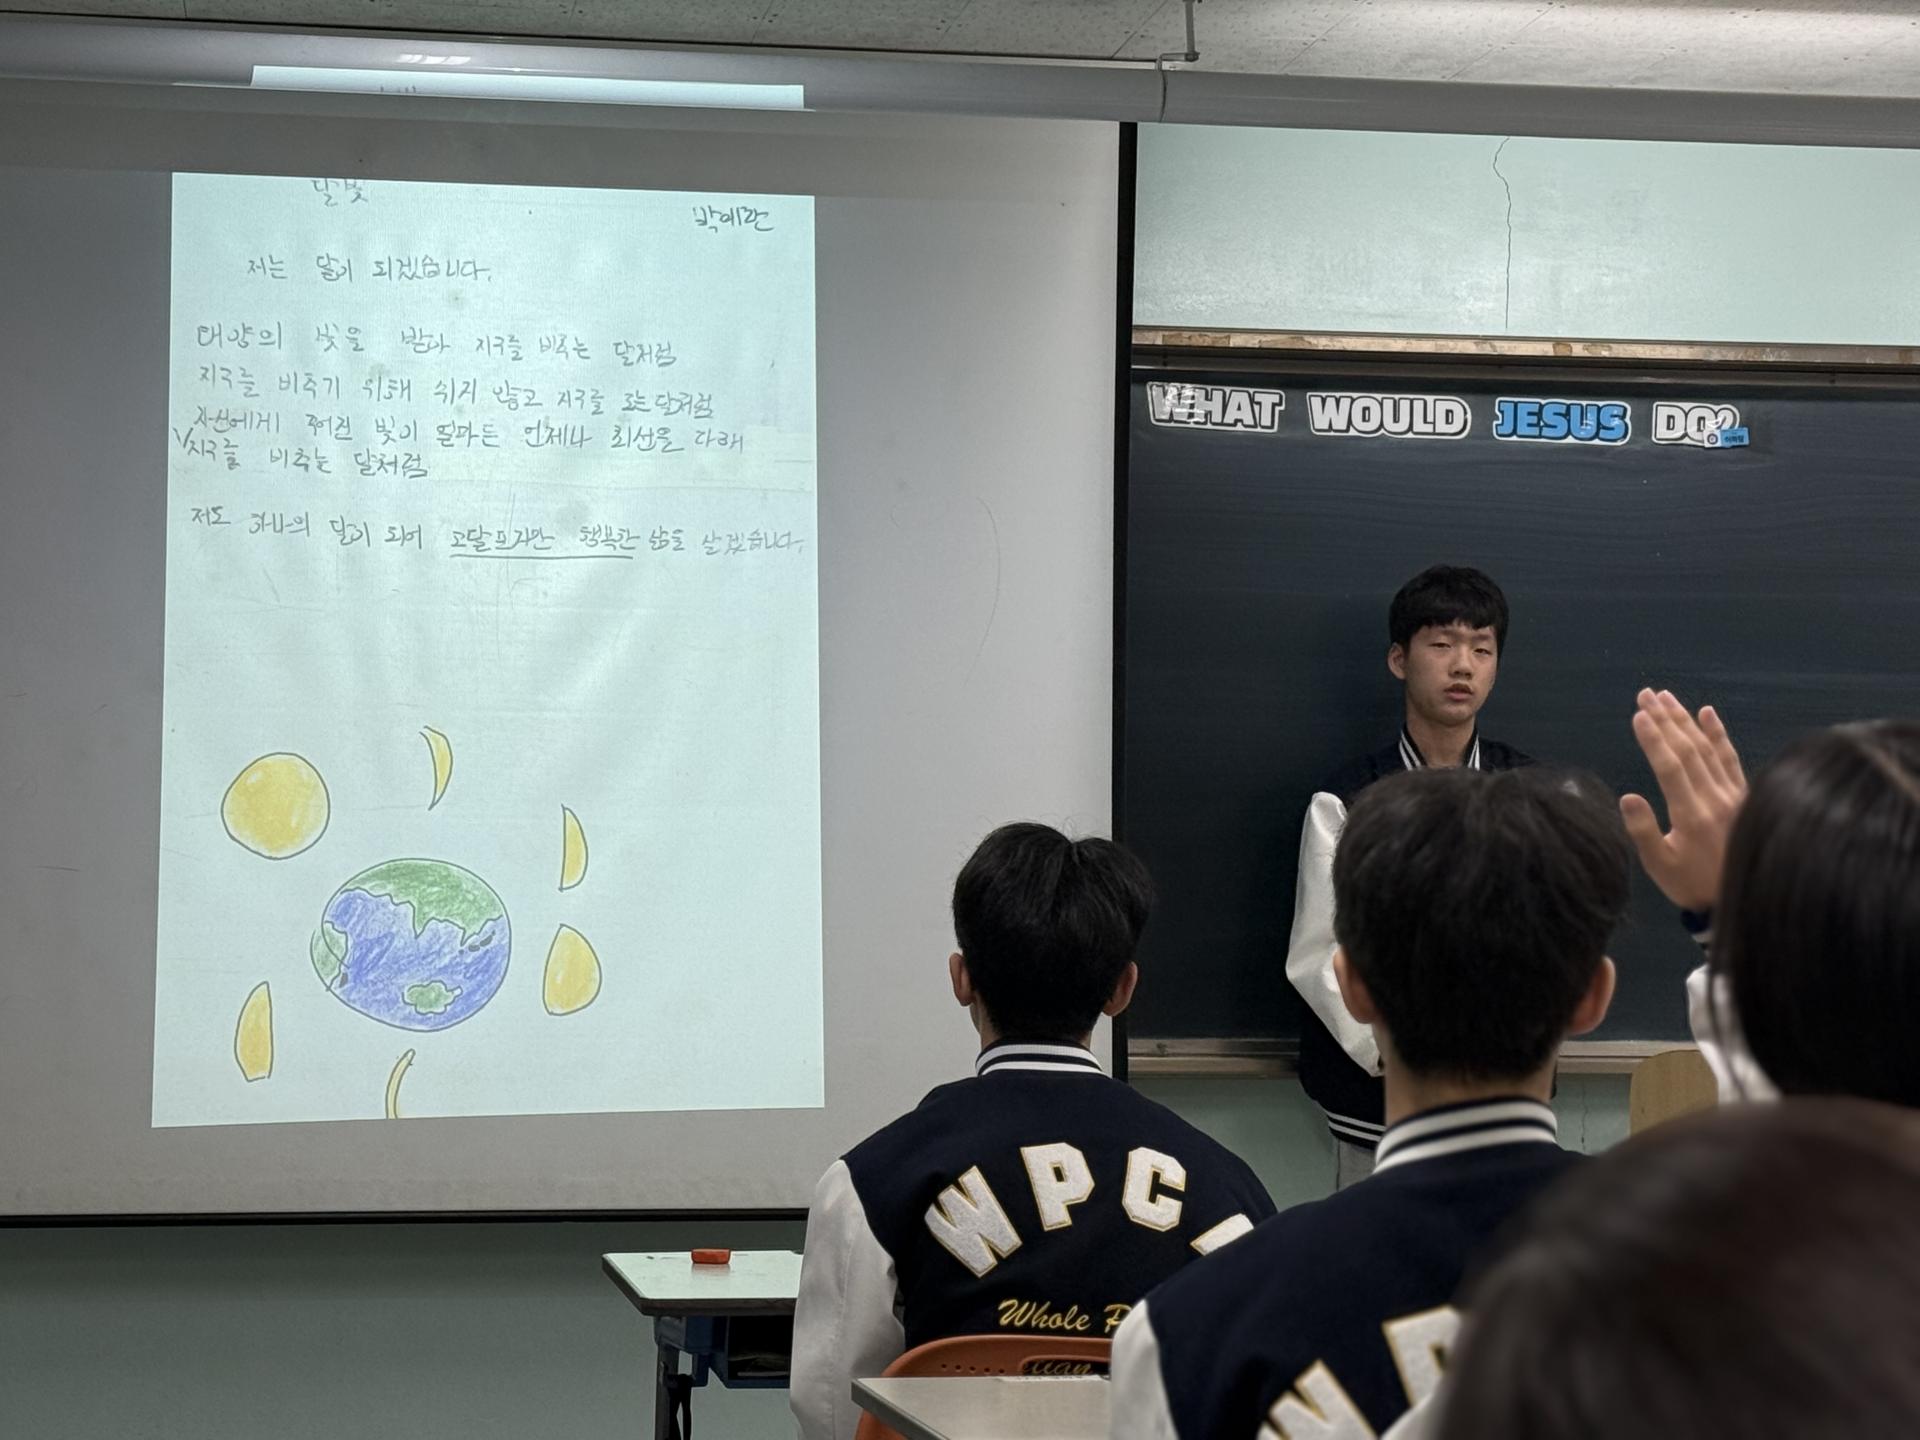 달빛
박예란
저는 달이 되겠습니다.
태양의 빛을 받아 지구를 비추는 달처럼
지구를 비추기 위해 쉬지 않고 지구를 도는 달처럼
자신에게 주어진 빛이 얼마든 언제나 최선을 다해
지구를 비추는 달처럼
저도 하나의 달이 되어 고달프지만 행복한 삶을 살겠습니다.
WHAT WOULD JESUS DO?
WPC
Whole P